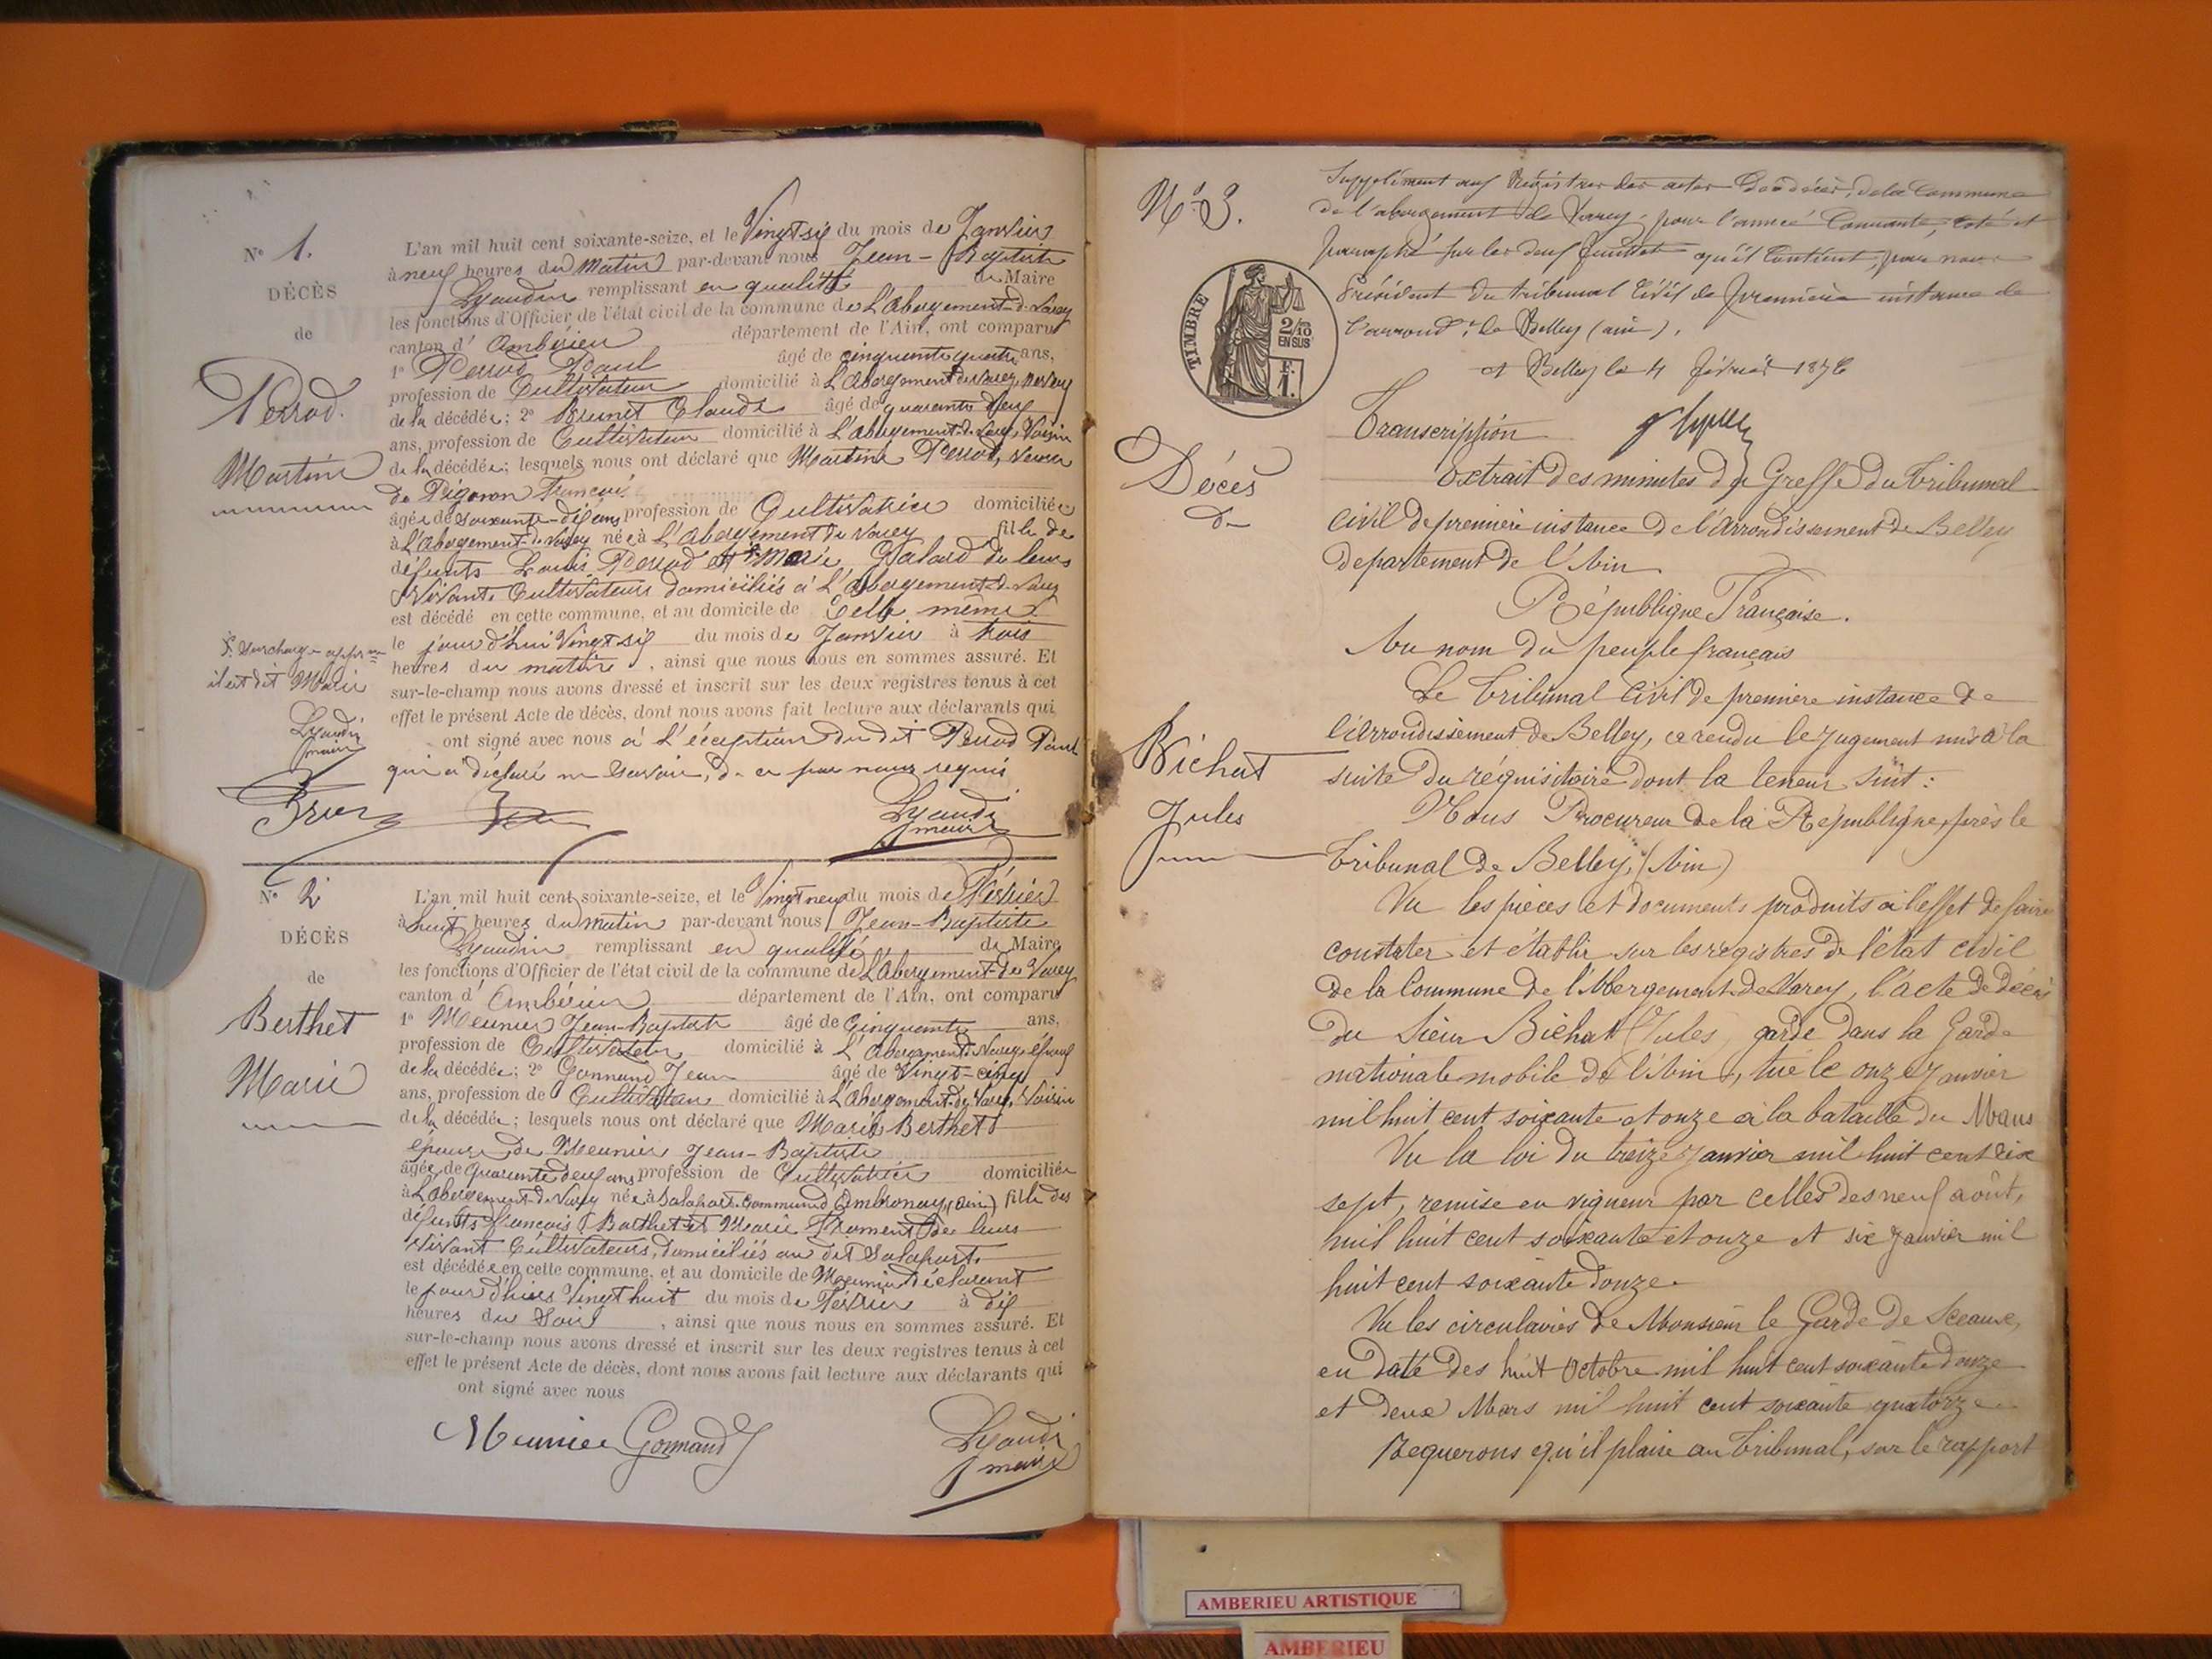 N° 1.
DÉCÈS
de
Perrod.
Martine
L'an mil huit cent soixante-seize, et le Vingt six du mois de Janvier
à neuf heures du Matin par-devant nous Jean-Baptiste
Lyaudin remplissant en qualité de Maire
les fonctions d'Officier de l'état civil de la commune de L'Abergement-de-Varey
canton d' Ambérieu département de l'Ain, ont comparu
1° Perrod Paul âgé de cinquante quatre ans,
profession de Cultivateur domicilié à L'Abergement de Varey, neveu
de la décédée; 2° Brunet Claude âgé de quarante deux
ans, profession de Cultivateur domicilié à L'abergement-de-Varey, Voisin
de la décédée; lesquels nous ont déclaré que Martine Perrod, veuve
de François
âgée de soixante-dix ans profession de Cultivatrice domiciliée
à L'abergement-de-Varey née à L'abergement de Varey fille de
défunts Louis Perrod et Marie Galard de leurs
Vivants Cultivateurs domiciliés à L'Abergement-de-Varey
est décédé en cette commune, et au domicile de Celle même
le jour d'hui Vingt six du mois de Janvier à trois
heures du matin, ainsi que nous nous en sommes assuré. Et
sur-le-champ nous avons dressé et inscrit sur les deux registres tenus à cet
effet le présent Acte de décès, dont nous avons fait lecture aux déclarants qui
ont signé avec nous à L'éxception du dit Perrod Paul
qui a déclaré ne Savoir, de ce par nous requis
Surcharge
il est dit Marie
Lyaudin
maire
Lyaudin
maire
N° 2
DÉCÈS
de
Berthet
Marie
L'an mil huit cent soixante-seize, et le Vingt neuf du mois de Février
à huit heures du matin par-devant nous Jean-Baptiste
Lyaudin remplissant en qualité de Maire
les fonctions d'Officier de l'état civil de la commune de L'Abergement-de Varey
canton d' Ambérieu département de l'Ain, ont comparu
1° Meunier Jean-Baptiste âgé de Cinquante ans,
profession de Cultivateur domicilié à L'abergement de Varey, époux
de la décédée; 2° Gonnand Jean âgé de Vingt-cinq
ans, profession de Cultivateur domicilié à L'abergement-de Varey, Voisin
de la décédée; lesquels nous ont déclaré que Marie Berthet
épouse de Meunier Jean-Baptiste
âgée de quarante deux ans profession de Cultivatrice domiciliée
à L'abergement-de Varey née à Salaport Commune d'Ambronay, (Ain) fille des
défunts François Berthet et Marie Froment de leurs
Vivant Cultivateurs, domiciliés au dit Salaport.
est décédée en cette commune, et au domicile de Meunier déclarant
le jour d'hier Vingt huit du mois de Février à dix
heures du Soir, ainsi que nous nous en sommes assuré. Et
sur-le-champ nous avons dressé et inscrit sur les deux registres tenus à cet
effet le présent Acte de décès, dont nous avons fait lecture aux déclarants qui
ont signé avec nous
Meunier Gonnand J
Lyaudin
maire
N° 3.
TIMBRE
2/10
EN SUS
F.
1.
Décès
de
Bichat
Jules
Supplément aux Régistres des actes de décès, de la Commune
de l'abergement de Varey, pour l'année Courante, coté et
paraphé sur les deux feuillets qu'il Contient, par nous
Président du tribunal Civil de première instance de
l'arrond.t de Belley (ain).
à Belley le 4 février 1876
Transcription
Extrait des minutes du Greffe du Tribunal
civil de première instance de l'Arrondissement de Belley
departement de l'Ain
République Française.
Au nom du peuple français
Le Tribunal Civil de première instance de
l'Arrondissement de Belley, a rendu le jugement mis à la
suite du réquisitoire dont la teneur suit:
Nous Procureur de la République, près le
Tribunal de Belley, (Ain)
Vu les pièces et documents produits à l'effet de faire
constater et établir sur les régistres de l'état civil
de la Commune de l'Abergement-de-Varey, l'acte de décès
du Sieur Bichat (Jules, garde dans la Garde
nationale mobile de l'Ain, tué le onze Janvier
mil huit cent soixante et onze à la bataille du Mans
Vu la loi du treize Janvier mil huit cent dix
sept, remise en vigueur par celles des neuf août,
mil huit cent soixante et onze et six Janvier mil
huit cent soixante douze.
Vu les circulaires de Monsieur le Garde de Sceaux,
en date des huit Octobre mil huit cent soixante douze
et deux Mars mil huit cent soixante quatorze.
Requerons qu'il plaise au Tribunal, sur le rapport
AMBERIEU ARTISTIQUE
AMBERIEU